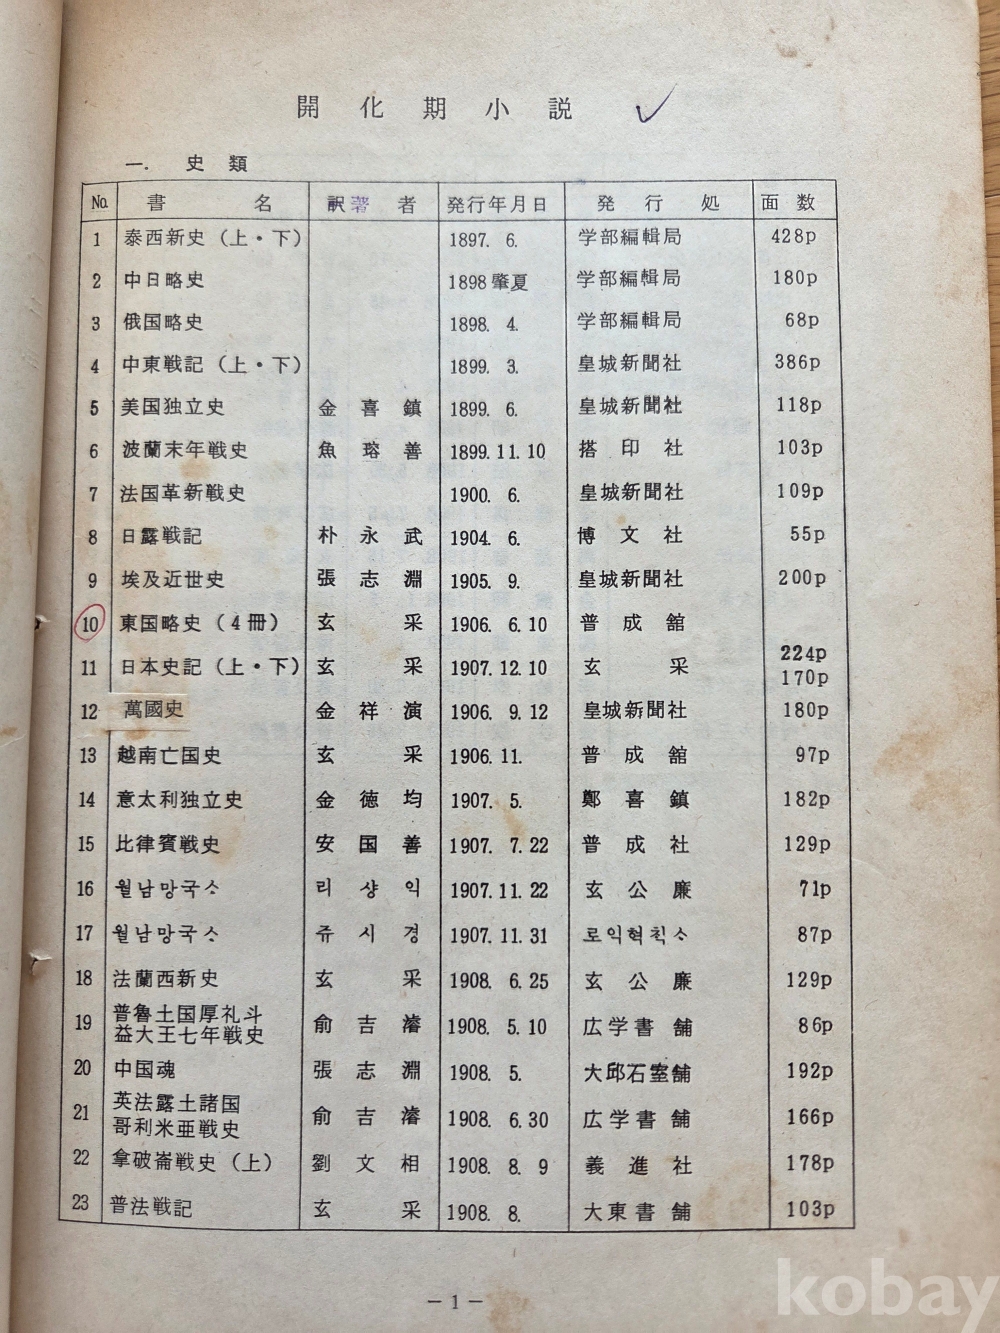 開化期小説
一. 史類
No. 書名 訳著者 発行年月日 発行処 面数
1 泰西新史 (上・下) 1897. 6. 学部編輯局 428p
2 中日略史 1898 肇夏 学部編輯局 180p
3 俄国略史 1898. 4. 学部編輯局 68p
4 中東戦記 (上・下) 1899. 3. 皇城新聞社 386p
5 美国独立史 金喜鎮 1899. 6. 皇城新聞社 118p
6 波蘭末年戦史 魚瑢善 1899. 11. 10 搭印社 103p
7 法国革新戦史 1900. 6. 皇城新聞社 109p
8 日露戦記 朴永武 1904. 6. 博文社 55p
9 埃及近世史 張志淵 1905. 9. 皇城新聞社 200p
10 東国略史 (4冊) 玄采 1906. 6. 10 普成舘
11 日本史記 (上・下) 玄采 1907. 12. 10 玄采 224p
170p
12 萬國史 金祥演 1906. 9. 12 皇城新聞社 180p
13 越南亡国史 玄采 1906. 11. 普成舘 97p
14 意太利独立史 金徳均 1907. 5. 鄭喜鎮 182p
15 比律賓戦史 安国善 1907. 7. 22 普成社 129p
16 월남망국ᄉᆞ 리샹익 1907. 11. 22 玄公廉 71p
17 월남망국ᄉᆞ 쥬시경 1907. 11. 31 로익형칙ᄉᆞ 87p
18 法蘭西新史 玄采 1908. 6. 25 玄公廉 129p
19 普魯土国厚礼斗
益大王七年戦史 俞吉濬 1908. 5. 10 広学書舗 86p
20 中国魂 張志淵 1908. 5. 大邱石室舗 192p
21 英法露土諸国
哥利米亜戦史 俞吉濬 1908. 6. 30 広学書舗 166p
22 拿破崙戦史 (上) 劉文相 1908. 8. 9 義進社 178p
23 普法戦記 玄采 1908. 8. 大東書舗 103p
– 1 –
kobay